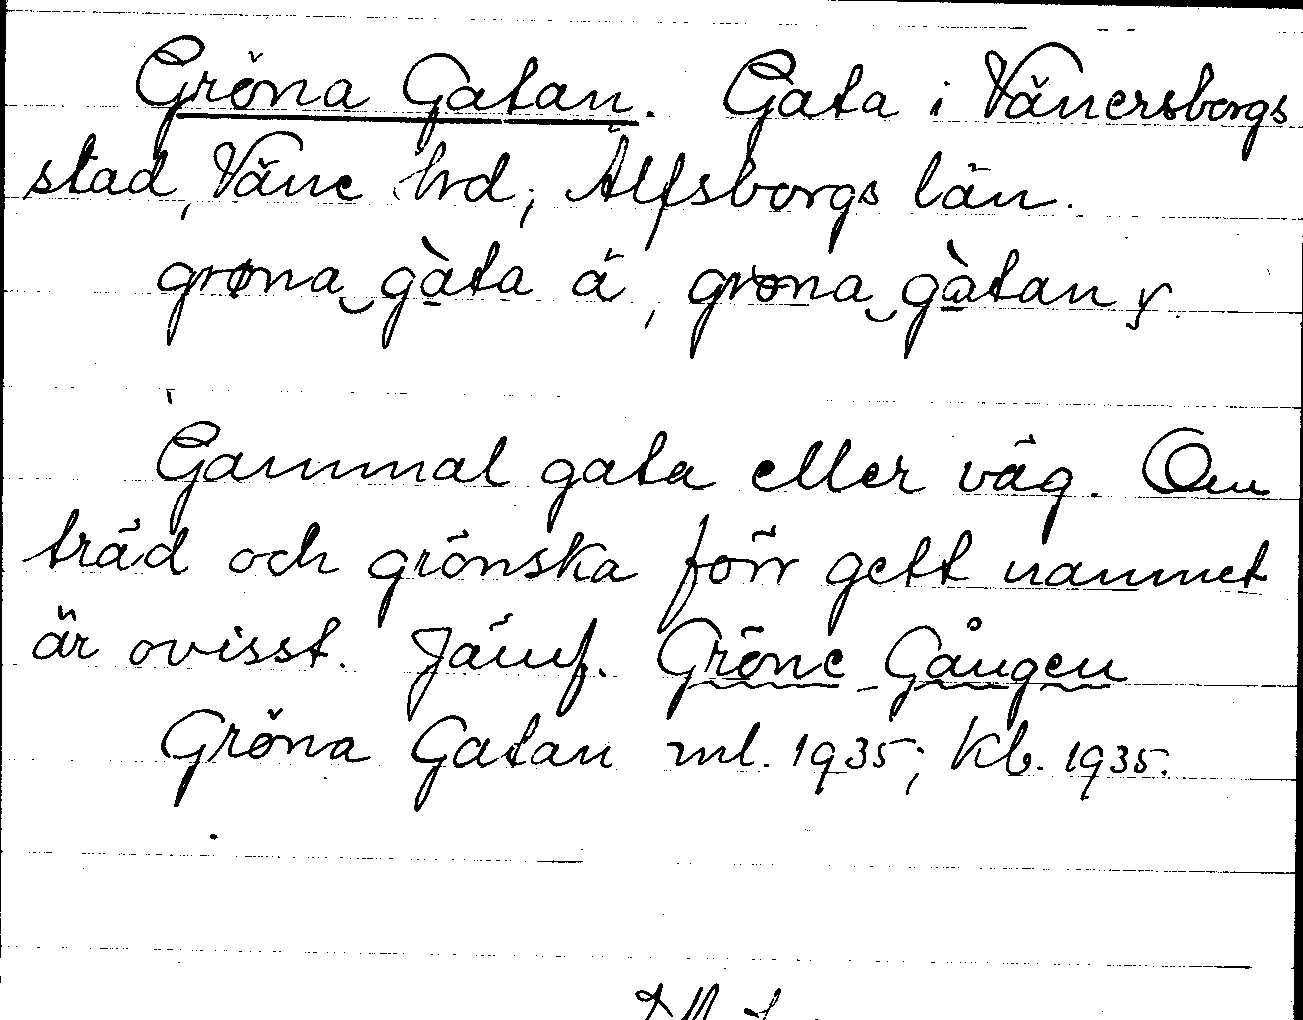 Gröna Gatan. Gata i Vänersborgs
stad, Väne hrd, Älfsborgs län.
grøna‿gàta ä, grøna‿gàtan y.
Gammal gata eller väg. Om
träd och grönska förr gett namnet
är ovisst. Jämf. Gröne Gången
Gröna Gatan ml. 1935; Kb. 1935.